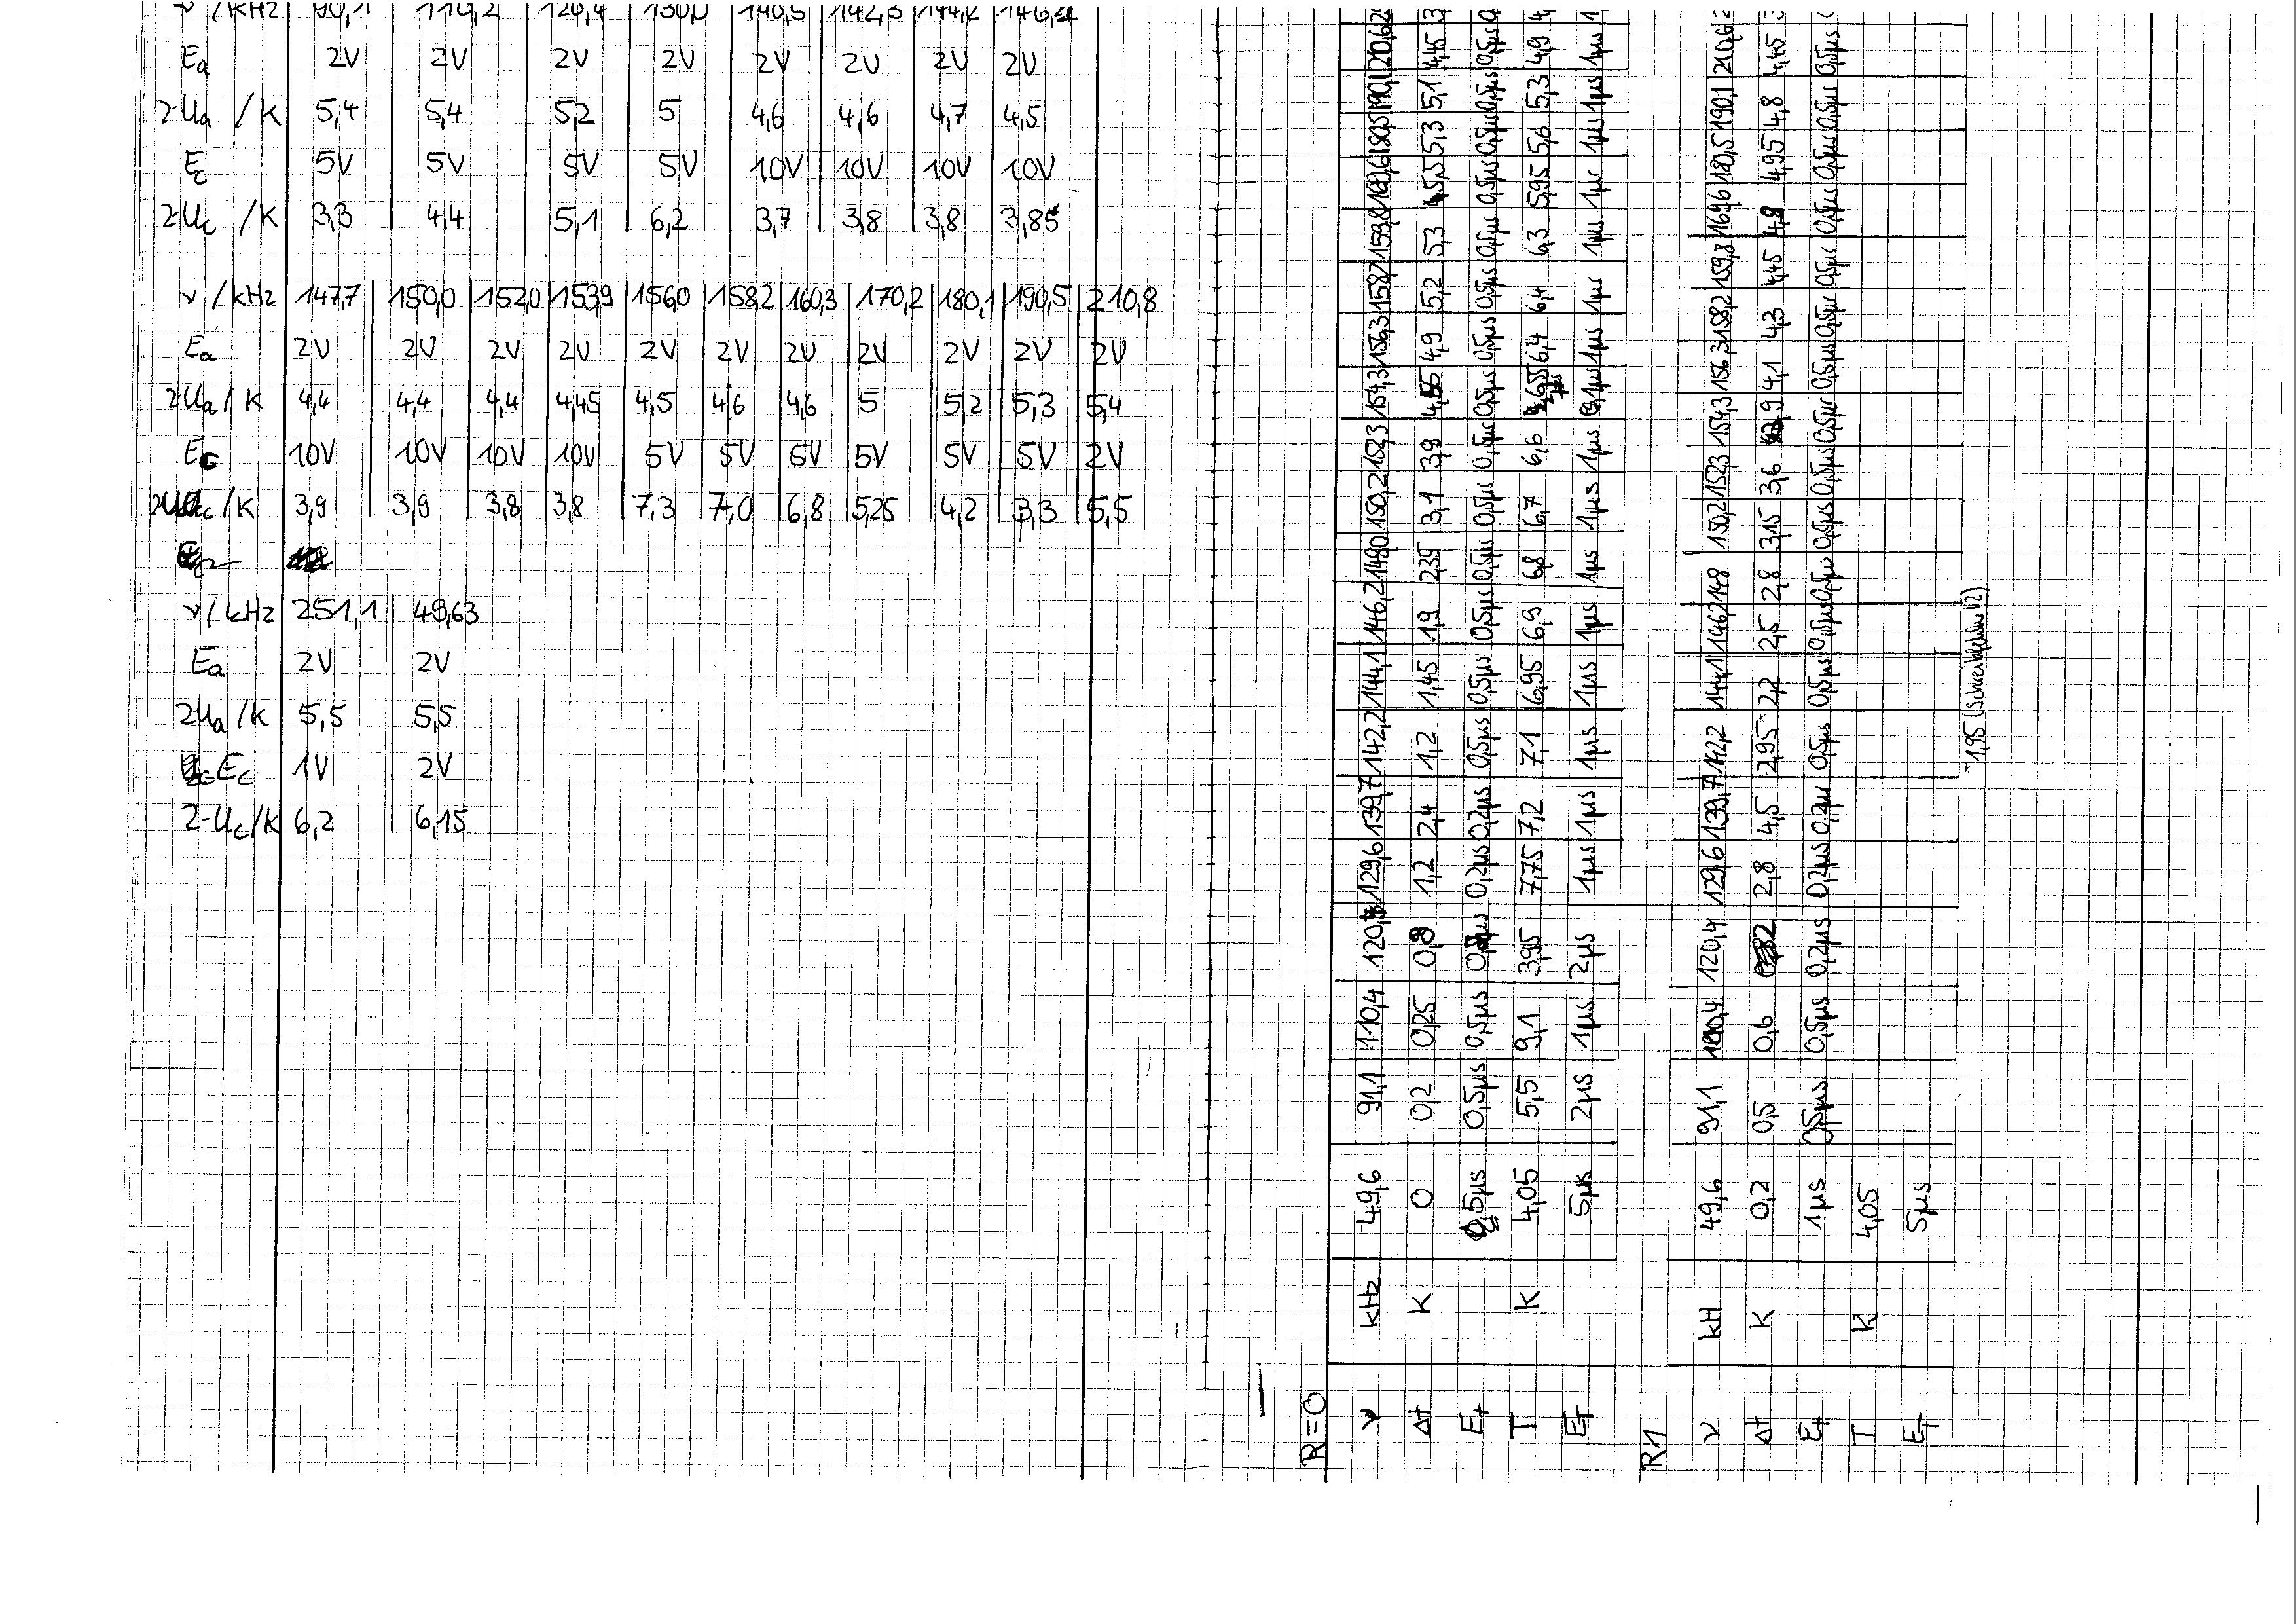 ν /kHz 90,1 110,2 120,4 130,0 140,5 142,3 144,2 146,2
Ea 2V 2V 2V 2V 2V 2V 2V 2V
2·Ua /K 5,4 5,4 5,2 5 4,6 4,6 4,7 4,5
Ec 5V 5V 5V 5V 10V 10V 10V 10V
2·Uc /K 3,3 4,4 5,1 6,2 3,7 3,8 3,8 3,85
ν /kHz 147,7 150,0 152,0 153,9 156,0 158,2 160,3 170,2 180,1 190,5 210,8
Ea 2V 2V 2V 2V 2V 2V 2V 2V 2V 2V 2V
2Ua/K 4,4 4,4 4,4 4,45 4,5 4,6 4,6 5 5,2 5,3 5,4
Ec 10V 10V 10V 10V 5V 5V 5V 5V 5V 5V 2V
2Uc/K 3,9 3,9 3,8 3,8 7,3 7,0 6,8 5,25 4,2 3,3 5,5
ν/kHz 251,1 49,63
Ea 2V 2V
2Ua/K 5,5 5,5
Ec 1V 2V
2·Uc/K 6,2 6,15
R=0
ν kHz 49,6 91,1 110,4 120,4 129,6 139,7 142,2 144,1 146,2 148,0 150,2 152,3 154,3 156,3 158,2 159,8 180,5 190,1 210,62
Δt K 0 0,2 0,25 0,8 1,2 2,4 1,2 1,45 1,9 2,35 3,1 3,9 4,9 5,2 5,3 5,3 5,1 4,45
Et 0,5µs 0,5µs 0,5µs 0,2µs 0,2µs 0,5µs 0,5µs 0,5µs 0,5µs 0,5µs 0,5µs 0,5µs 0,5µs 0,5µs 0,5µs 0,5µs 0,5µs 0,5µs 0,5µ
T K 4,05 5,5 9,1 3,95 7,75 7,2 7,1 6,95 6,9 6,8 6,7 6,6 6,55 6,4 6,4 6,3 5,95 5,6 5,3 4,9
ET 5µs 2µs 1µs 2µs 1µs 1µs 1µs 1µs 1µs 1µs 1µs 1µs 1µs 1µs 1µs 1µs 1µs 1µs 1µs 1µs
R1
ν kH 49,6 91,1 120,4 129,6 139,7 142,2 144,1 146,2 148 150,2 152,3 154,3 156,3 158,2 159,8 169,6 180,5 190,1 210,6
Δt K 0,2 0,5 0,6 2,8 4,5 2,95* 2,2 2,5 2,8 3,15 3,6 4,1 4,3 4,45 4,8 4,95 4,8 4,45
Et 1µs 0,5µs 0,5µs 0,2µs 0,2µs 0,2µ 0,5µs 0,5µs 0,5µs 0,5µs 0,5µs 0,5µs 0,5µs 0,5µs 0,5µs 0,5µs 0,5µs 0,5µs 0,5µs 0,5µs
T K 4,05
ET 5µs
*1,95